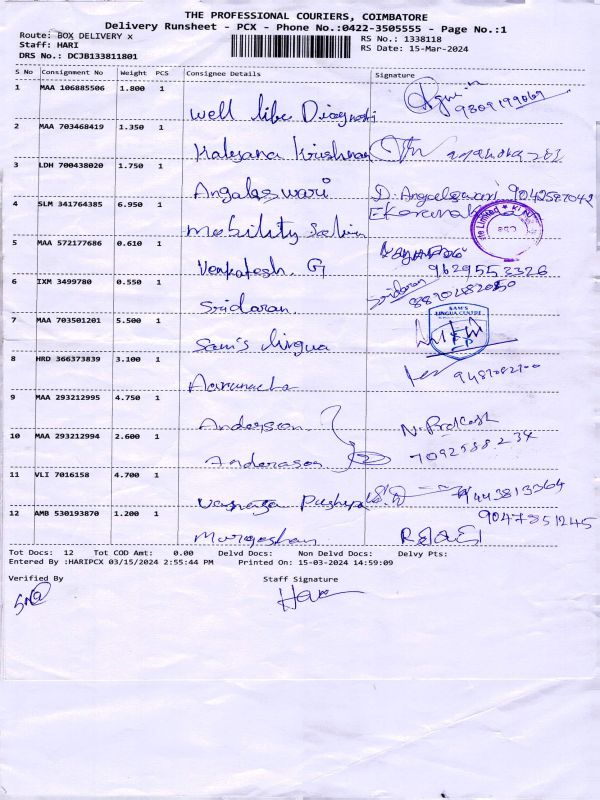 THE PROFESSIONAL COURIERS, COIMBATORE
Delivery Runsheet - PCX - Phone No.:0422-3505555 - Page No.:1
Route: BOX DELIVERY x
RS No.: 1338118
Staff: HARI
RS Date: 15-Mar-2024
DRS No.: DCJB133811801
S No Consignment No Weight PCS Consignee Details Signature
1 MAA 106885506 1.800 1 Well like
9809199069
2 MAA 703468419 1.350 1 Kalyana Krishnan
3 LDH 700438020 1.750 1 Angalaswari D. Angalswari 9042587042
4 SLM 341764385 6.950 1 Mobility
5 MAA 572177686 0.610 1 Venkatesh. G 9629553326
6 IXM 3499780 0.550 1 Sridaran. Sridaran
8890482050
7 MAA 703501201 5.500 1 Sam's lingua SAM'S LINGUA CENTRE
8 HRD 366373839 3.100 1 Aarunacha
9 MAA 293212995 4.750 1 Anderson. N. Prakash
10 MAA 293212994 2.600 1 Anderason 7092588234
11 VLI 7016158 4.700 1 9443813364
12 AMB 530193870 1.200 1 Murgeshan 9047851245
Tot Docs: 12 Tot COD Amt: 0.00 Delvd Docs: Non Delvd Docs: Delvy Pts:
Entered By :HARIPCX 03/15/2024 2:55:44 PM Printed On: 15-03-2024 14:59:09
Verified By Staff Signature